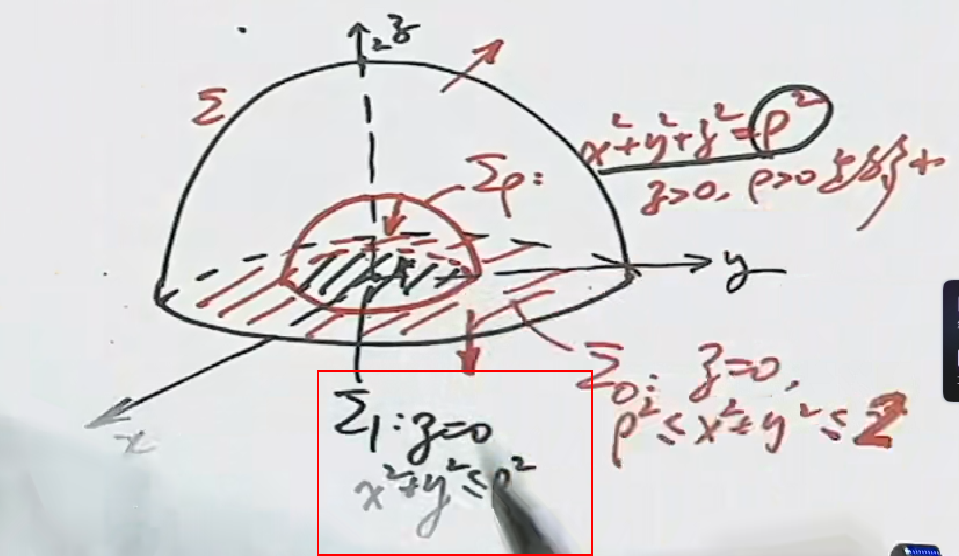 z
Σ
x²+y²+z²=ρ²
Σρ:
z>0, ρ>0
y
x
Σ₀: z=0,
ρ²≤x²+y²≤2
Σ₁: z=0
x²+y²≤ρ²